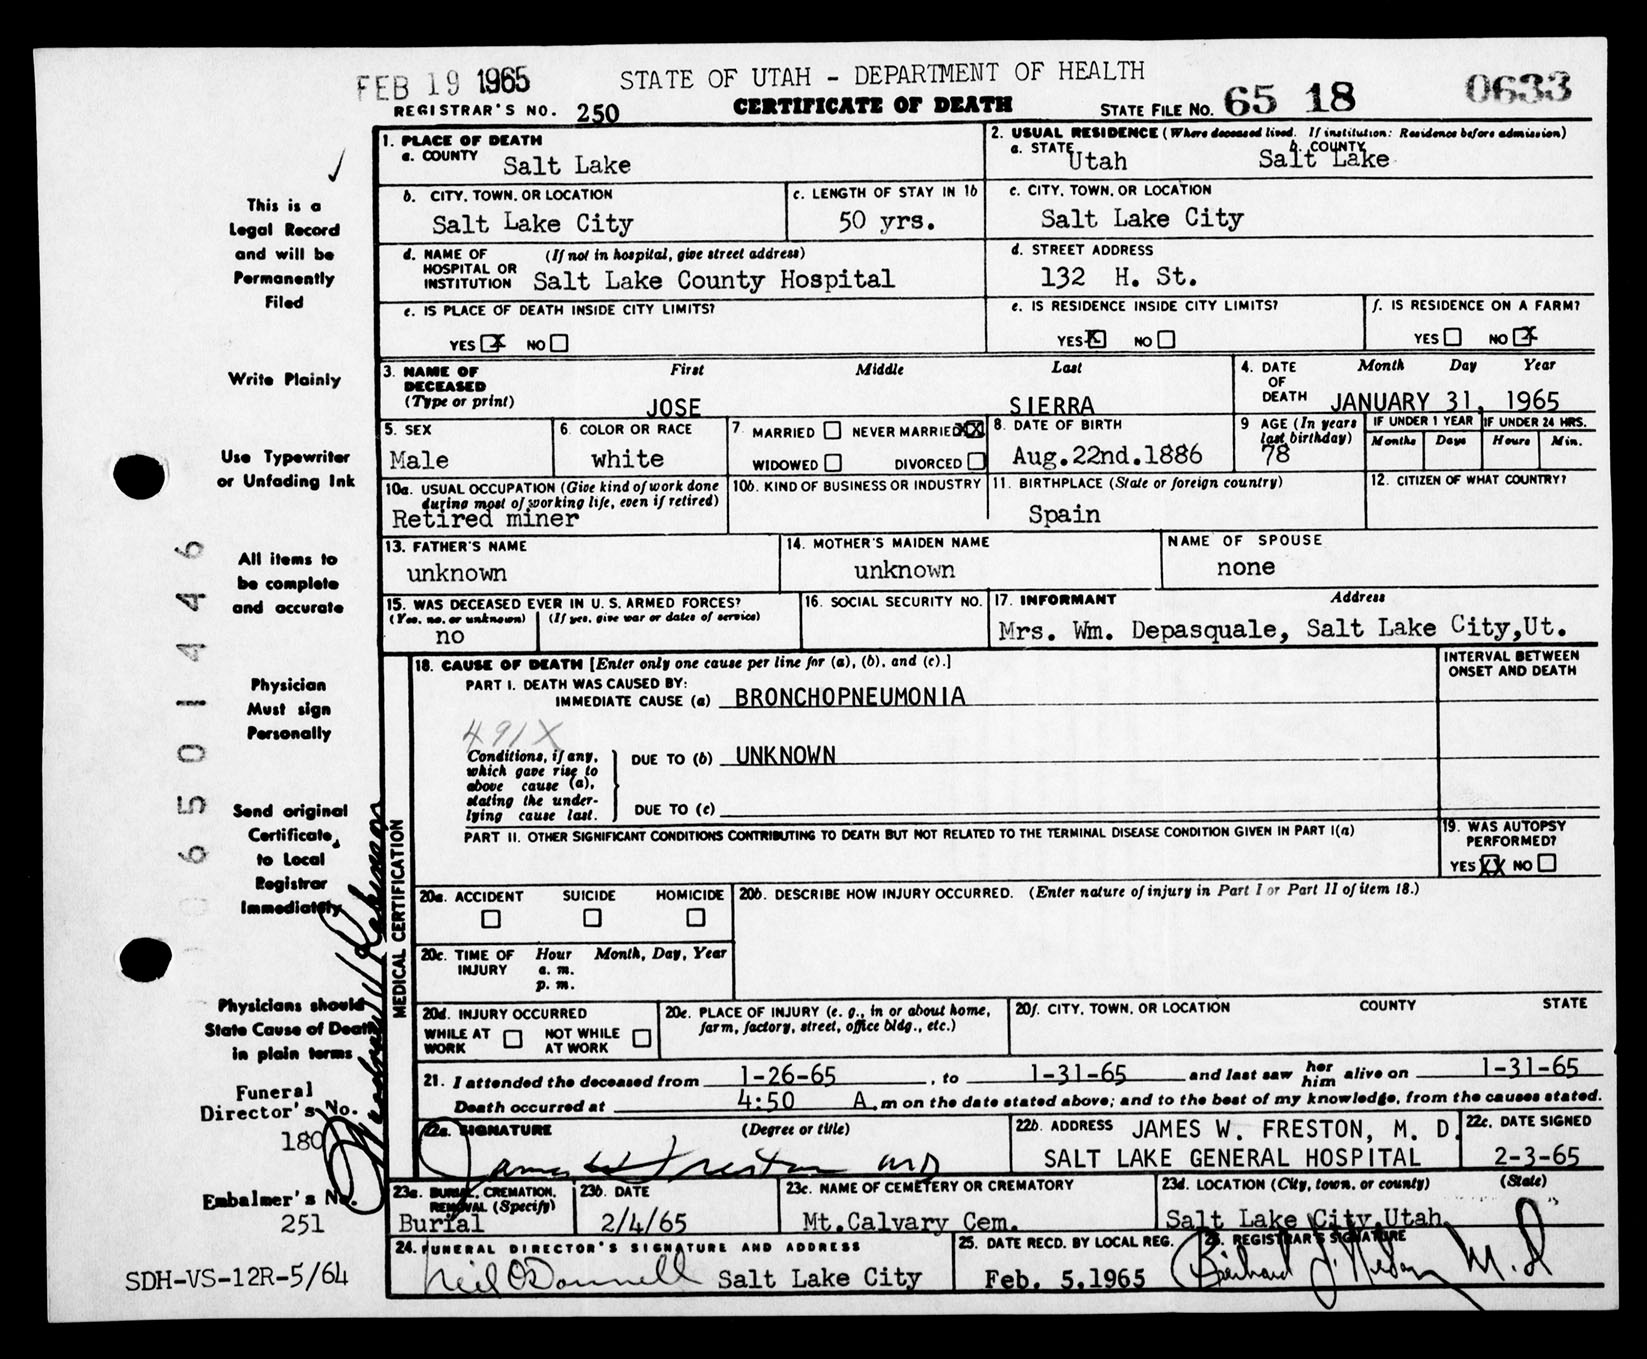 FEB 19 1965
STATE OF UTAH - DEPARTMENT OF HEALTH
0633
REGISTRAR'S NO. 250
CERTIFICATE OF DEATH
STATE FILE No. 65 18
This is a
Legal Record
and will be
Permanently
Filed
Write Plainly
Use Typewriter
or Unfading Ink
All items to
be complete
and accurate
Physician
Must sign
Personally
Send original
Certificate
to Local
Registrar
Immediately
Physicians should
State Cause of Death
in plain terms
Funeral
Director's No.
180
Embalmer's No.
251
SDH-VS-12R-5/64
0 6 5 0 1 4 4 6
1. PLACE OF DEATH
a. COUNTY Salt Lake
2. USUAL RESIDENCE (Where deceased lived. If institution: Residence before admission)
a. STATE Utah b. COUNTY Salt Lake
b. CITY, TOWN, OR LOCATION
Salt Lake City
c. LENGTH OF STAY IN 1b
50 yrs.
c. CITY, TOWN, OR LOCATION
Salt Lake City
d. NAME OF HOSPITAL OR INSTITUTION (If not in hospital, give street address)
Salt Lake County Hospital
d. STREET ADDRESS
132 H. St.
e. IS PLACE OF DEATH INSIDE CITY LIMITS?
YES X NO
e. IS RESIDENCE INSIDE CITY LIMITS?
YES X NO
f. IS RESIDENCE ON A FARM?
YES NO X
3. NAME OF DECEASED (Type or print)
First Middle Last
JOSE SIERRA
4. DATE OF DEATH
Month Day Year
JANUARY 31, 1965
5. SEX
Male
6. COLOR OR RACE
white
7. MARRIED NEVER MARRIED XX
WIDOWED DIVORCED
8. DATE OF BIRTH
Aug.22nd.1886
9 AGE (In years last birthday)
78
IF UNDER 1 YEAR
Months Days
IF UNDER 24 HRS.
Hours Min.
10a. USUAL OCCUPATION (Give kind of work done during most of working life, even if retired)
Retired miner
10b. KIND OF BUSINESS OR INDUSTRY
11. BIRTHPLACE (State or foreign country)
Spain
12. CITIZEN OF WHAT COUNTRY?
13. FATHER'S NAME
unknown
14. MOTHER'S MAIDEN NAME
unknown
NAME OF SPOUSE
none
15. WAS DECEASED EVER IN U. S. ARMED FORCES?
(Yes, no, or unknown) (If yes, give war or dates of service)
no
16. SOCIAL SECURITY NO.
17. INFORMANT Address
Mrs. Wm. Depasquale, Salt Lake City,Ut.
MEDICAL CERTIFICATION
18. CAUSE OF DEATH [Enter only one cause per line for (a), (b), and (c).]
INTERVAL BETWEEN ONSET AND DEATH
PART I. DEATH WAS CAUSED BY:
IMMEDIATE CAUSE (a) BRONCHOPNEUMONIA
491X
Conditions, if any, which gave rise to above cause (a), stating the underlying cause last.
DUE TO (b) UNKNOWN
DUE TO (c)
PART II. OTHER SIGNIFICANT CONDITIONS CONTRIBUTING TO DEATH BUT NOT RELATED TO THE TERMINAL DISEASE CONDITION GIVEN IN PART I(a)
19. WAS AUTOPSY PERFORMED?
YES XX NO
20a. ACCIDENT SUICIDE HOMICIDE
20b. DESCRIBE HOW INJURY OCCURRED. (Enter nature of injury in Part I or Part II of item 18.)
20c. TIME OF INJURY
Hour Month, Day, Year
a. m.
p. m.
20d. INJURY OCCURRED
WHILE AT WORK NOT WHILE AT WORK
20e. PLACE OF INJURY (e. g., in or about home, farm, factory, street, office bldg., etc.)
20f. CITY, TOWN, OR LOCATION COUNTY STATE
21. I attended the deceased from 1-26-65, to 1-31-65 and last saw her him alive on 1-31-65
Death occurred at 4:50 A.m on the date stated above; and to the best of my knowledge, from the causes stated.
22a. SIGNATURE (Degree or title)
James W Freston MD
22b. ADDRESS JAMES W. FRESTON, M. D.
SALT LAKE GENERAL HOSPITAL
22c. DATE SIGNED
2-3-65
23a. BURIAL, CREMATION, REMOVAL (Specify)
Burial
23b. DATE
2/4/65
23c. NAME OF CEMETERY OR CREMATORY
Mt.Calvary Cem.
23d. LOCATION (City, town, or county) (State)
Salt Lake City Utah
24. FUNERAL DIRECTOR'S SIGNATURE AND ADDRESS
Neil O'Donnell Salt Lake City
25. DATE RECD. BY LOCAL REG.
Feb. 5.1965
26. REGISTRAR'S SIGNATURE
M.D